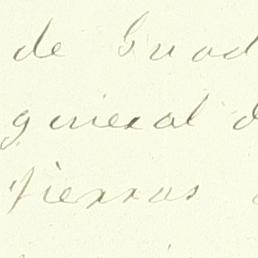 de Guad
general d
tierras